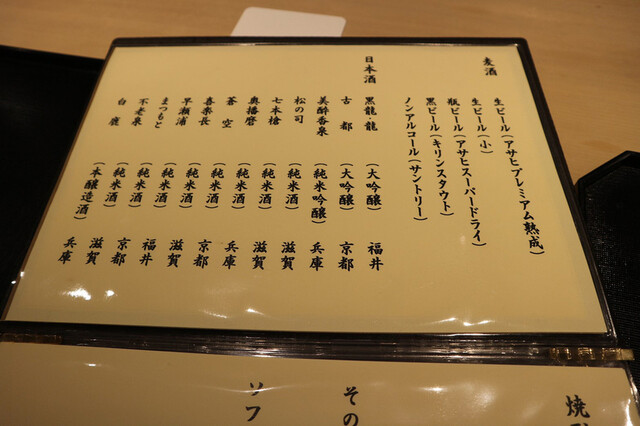 麦酒
生ビール(アサヒプレミアム熟成)
生ビール(小)
瓶ビール(アサヒスーパードライ)
黒ビール(キリンスタウト)
ノンアルコール(サントリー)
日本酒
黒龍・龍 (大吟醸) 福井
古都 (大吟醸) 京都
美酔香泉 (純米吟醸) 兵庫
松の司 (純米酒) 滋賀
七本槍 (純米酒) 滋賀
奥播磨 (純米酒) 兵庫
蒼空 (純米酒) 京都
喜楽長 (純米酒) 滋賀
早瀬浦 (純米酒) 福井
まつもと (純米酒) 京都
不老泉 (純米酒) 滋賀
白鹿 (本醸造酒) 兵庫
焼
その
ソフ